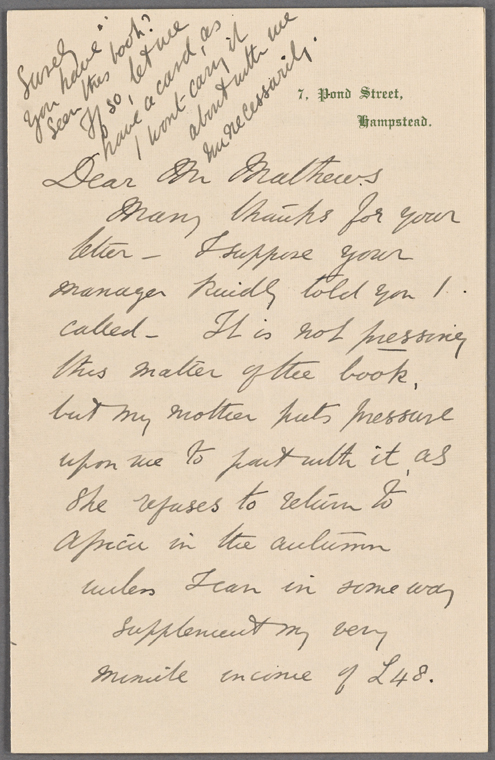 Surely
you have
seen this book?
If so, let me
have a card, as
I wont carry it
about with me
unnecessarily.
7, Pond Street,
Hampstead.
Dear Mr Mathews
Many thanks for your
letter – I suppose your
manager kindly told you I
called – It is not pressing
this matter of the book,
but my mother puts pressure
upon me to part with it, as
she refuses to return to
Africa in the autumn
unless I can in some way
supplement my very
minute income of £48.